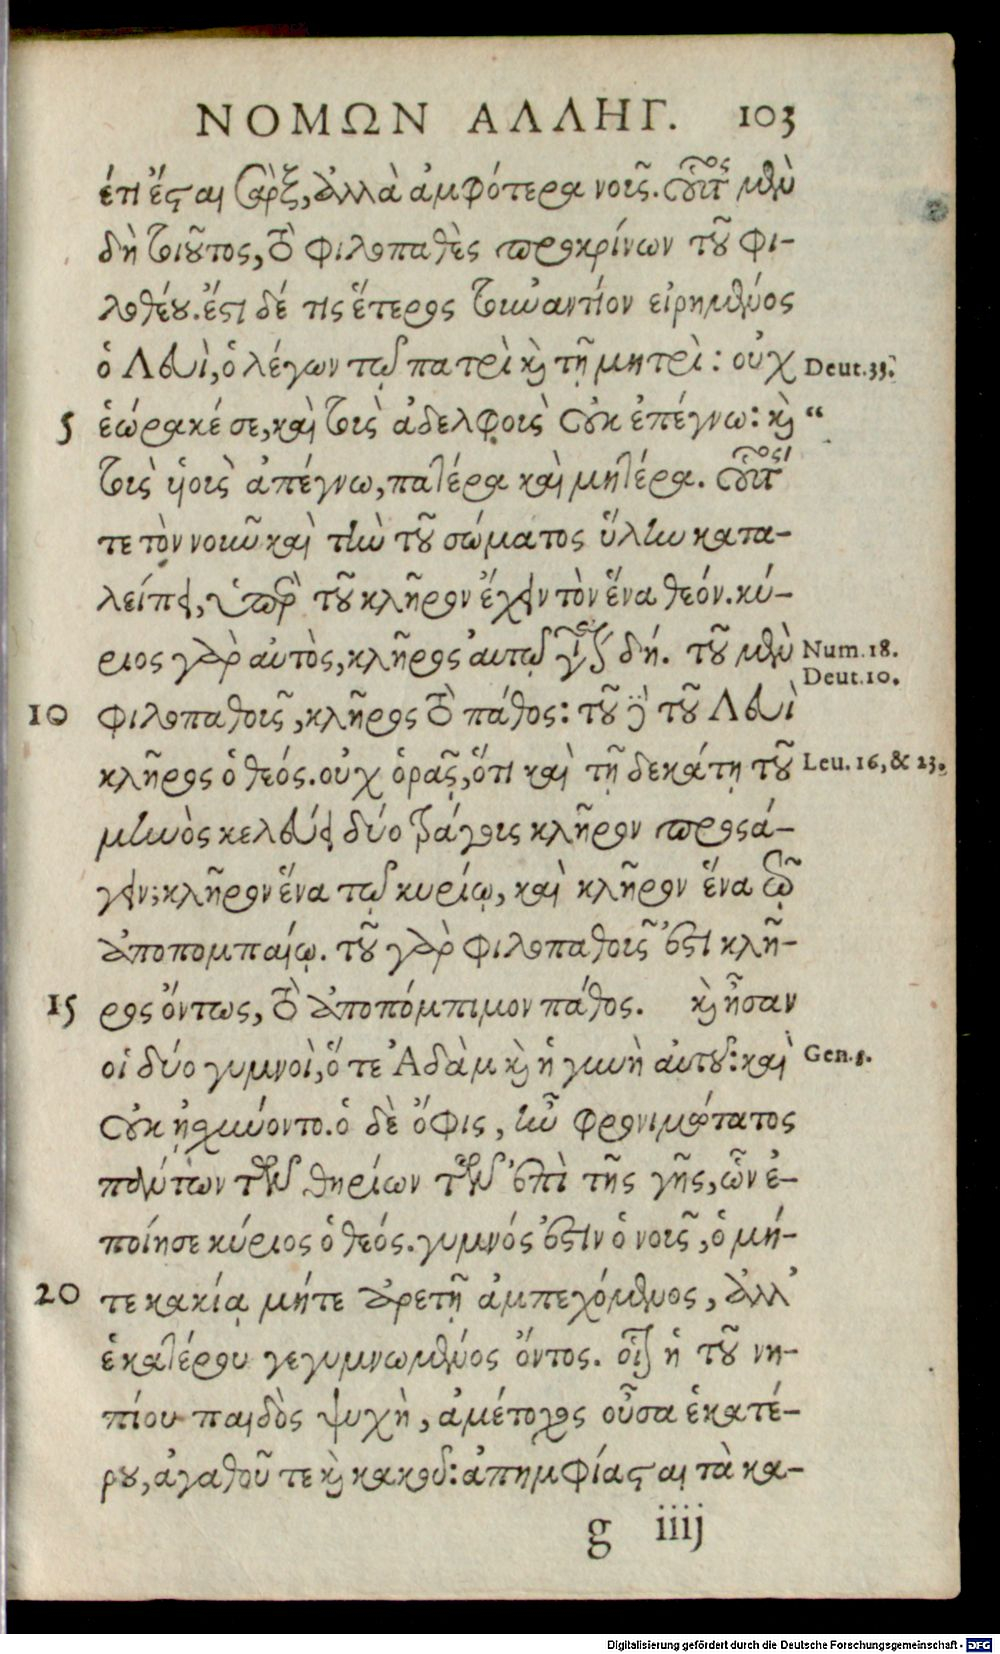 ΝΟΜΩΝ ΑΛΛΗΓ. 103
ἐτι ἔσται σὰρξ, ἀλλὰ ἀμφότερα νοῦς. οὗτος μὲν
δὴ τοιοῦτος, ὁ φιλοπαθὲς προκρίνων τοῦ φι-
λοθέου. ἔστι δέ τις ἕτερος τοὐναντίον εἰρημένος
ὁ Λευὶ, ὁ λέγων τῷ πατρὶ καὶ τῇ μητρὶ: οὐχ Deut. 33.
5 ἑώρακέ σε, καὶ τοὺς ἀδελφοὺς οὐκ ἐπέγνω: καὶ “
τοὺς υἱοὺς ἀπέγνω, πατέρα καὶ μητέρα. οὗτός
τε τὸν νοῦν καὶ τὴν τοῦ σώματος ὕλην κατα-
λείπει, ὑπὲρ τοῦ κλῆρον ἔχειν τὸν ἕνα θεόν. κύ-
ριος γὰρ αὐτὸς, κλῆρος αὐτῷ γίνεται δή. τοῦ μὲν Num. 18.
Deut. 10.
10 φιλοπαθοῦς, κλῆρος τὸ πάθος: τοῦ δὲ τοῦ Λευὶ
κλῆρος ὁ θεός. οὐχ ὁρᾷς, ὅτι καὶ τῇ δεκάτῃ τοῦ Leu. 16, & 23.
μηνὸς κελεύει δύο τράγους κλῆρον προσά-
γειν; κλῆρον ἕνα τῷ κυρίῳ, καὶ κλῆρον ἕνα τῷ
ἀποπομπαίῳ. τοῦ γὰρ φιλοπαθοῦς ἐστι κλῆ-
15 ρος ὄντως, τὸ ἀποπόμπιμον πάθος. καὶ ἦσαν
οἱ δύο γυμνοὶ, ὅ τε Ἀδὰμ καὶ ἡ γυνὴ αὐτοῦ: καὶ Gen. 5.
οὐκ ᾐσχύνοντο. ὁ δὲ ὄφις, ἦν φρονιμώτατος
πάντων τῶν θηρίων τῶν ἐπὶ τῆς γῆς, ὧν ἐ-
ποίησε κύριος ὁ θεός. γυμνός ἐστιν ὁ νοῦς, ὁ μή-
20 τε κακίᾳ μήτε ἀρετῇ ἀμπεχόμενος, ἀλλ’
ἑκατέρου γεγυμνωμένος ὄντος. οἷον ἡ τοῦ νη-
πίου παιδὸς ψυχὴ, ἀμέτοχος οὖσα ἑκατέ-
ρου, ἀγαθοῦ τε καὶ κακοῦ: ἀπημφίασται τὰ κα-
g iiij
Digitalisierung gefördert durch die Deutsche Forschungsgemeinschaft - DFG